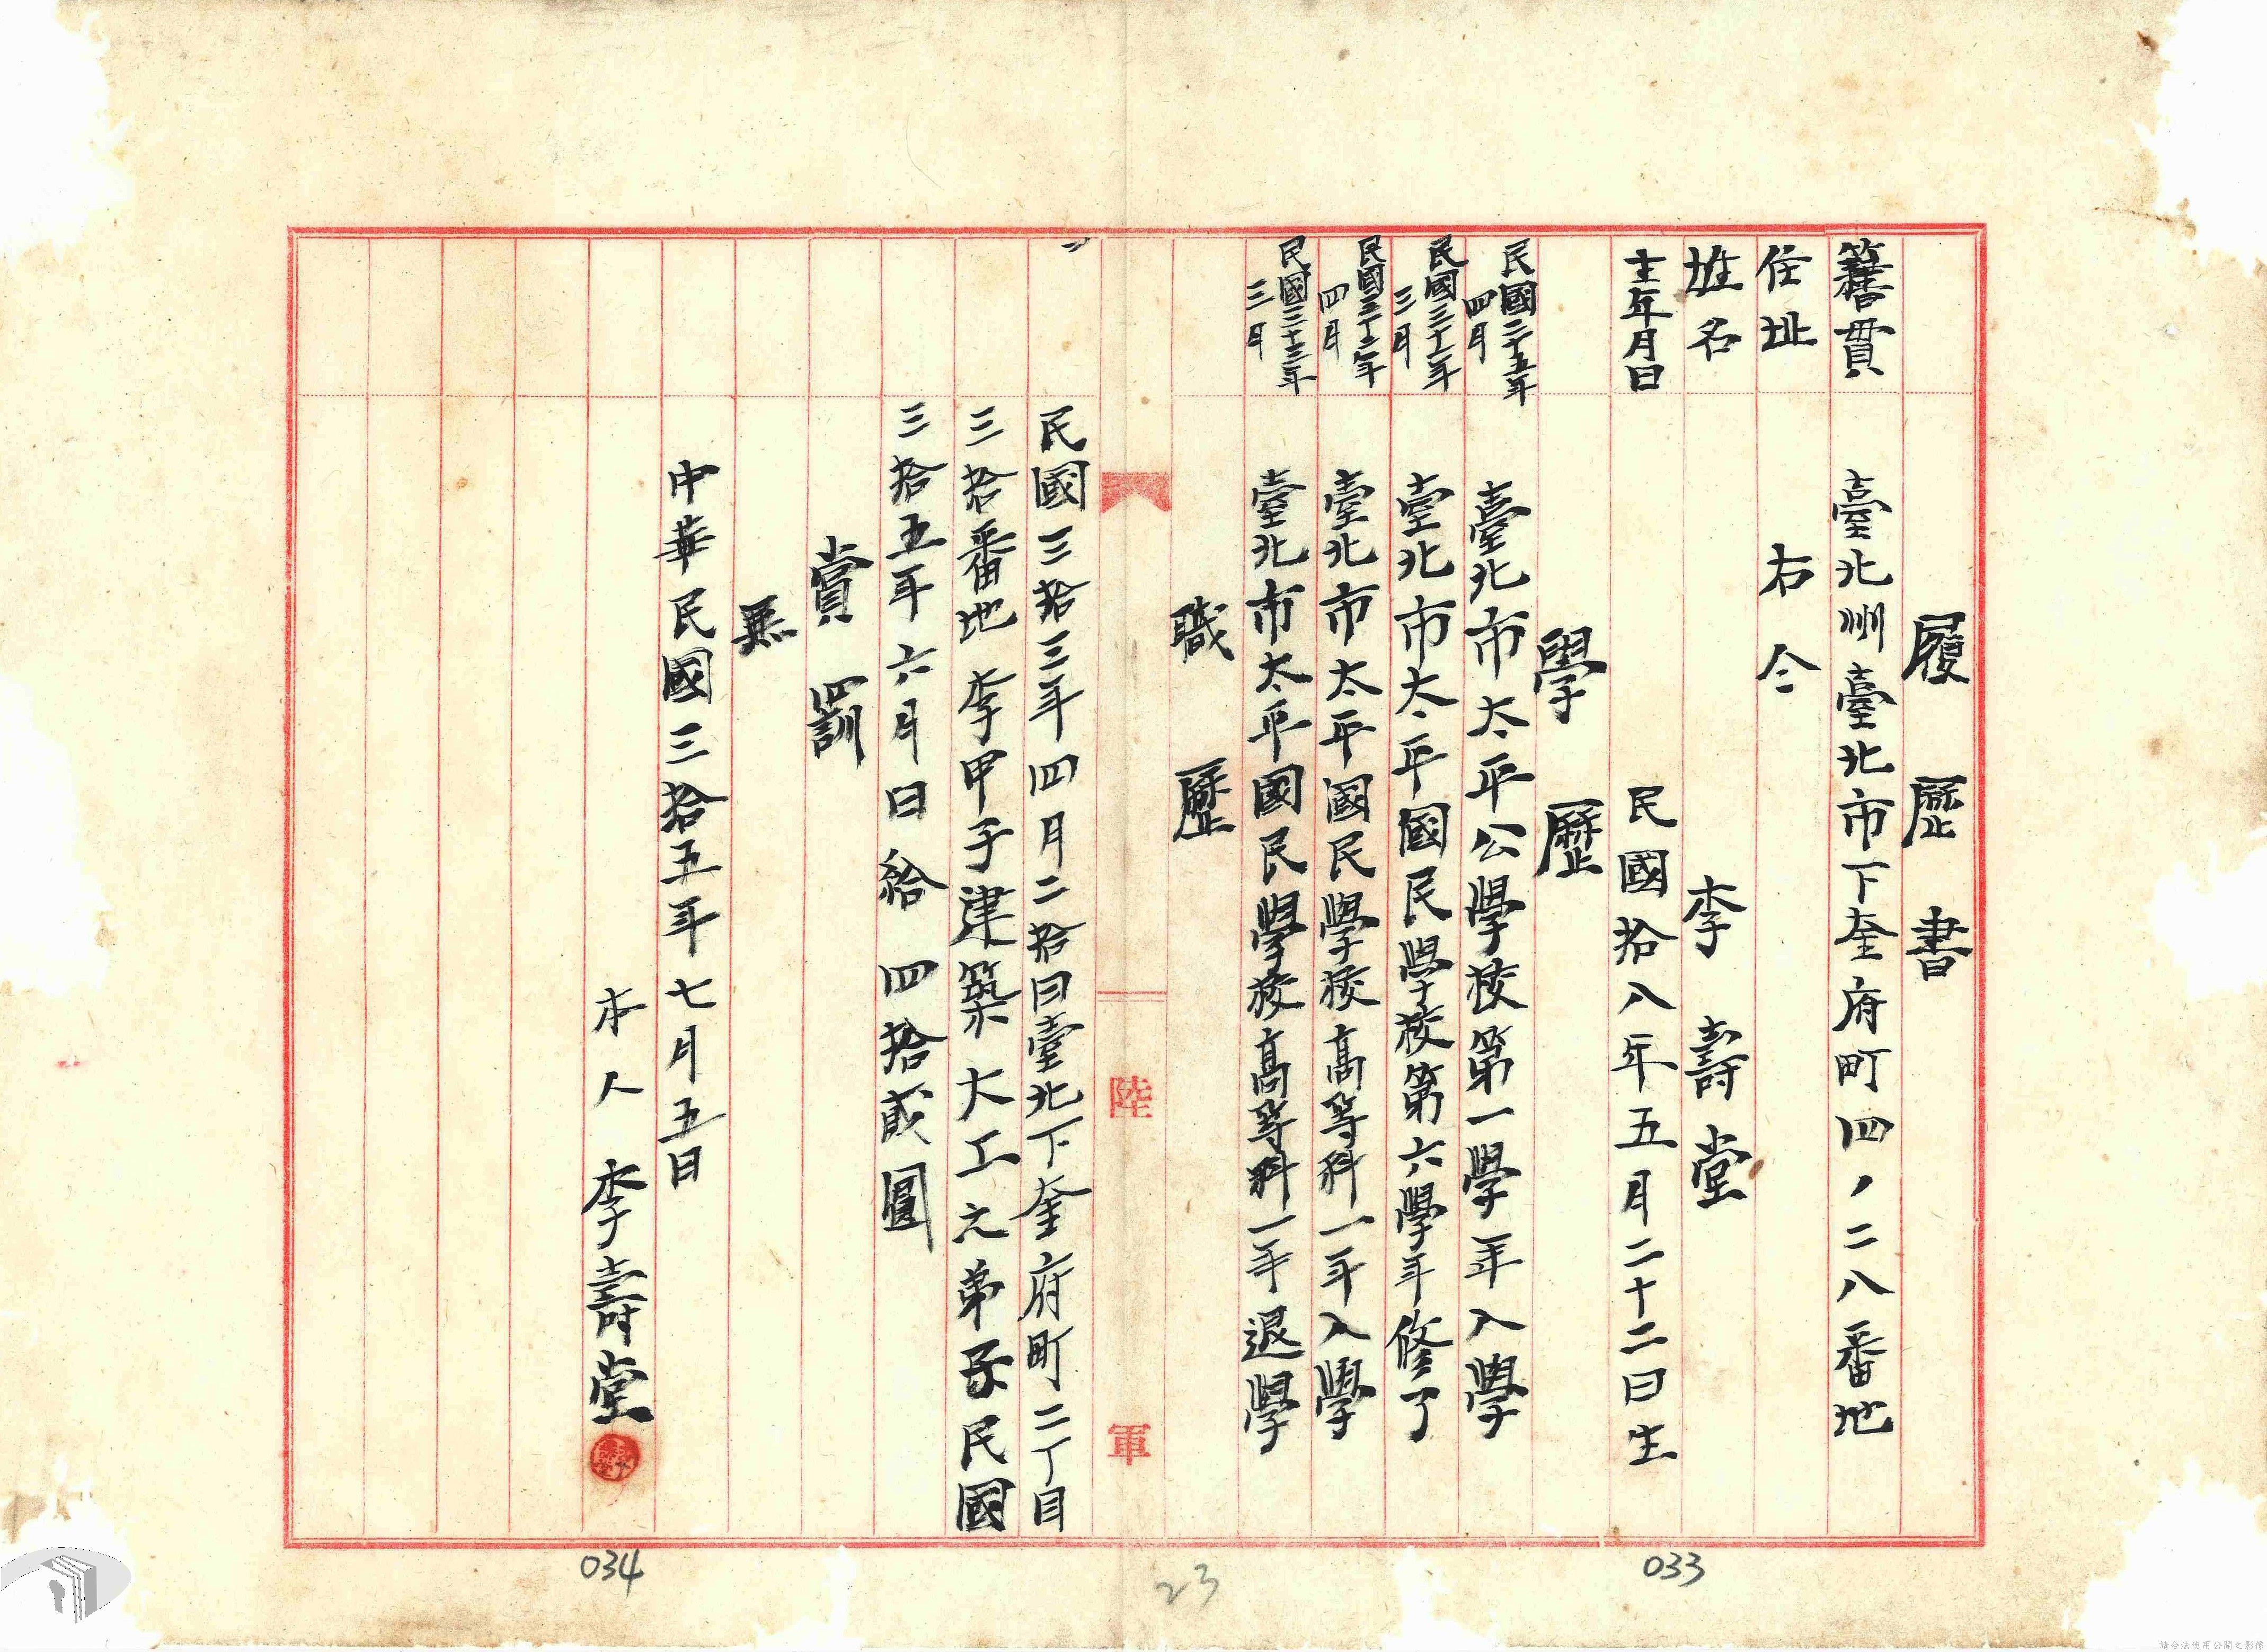 履歷書
籍貫 臺北州臺北市下奎府町四ノ二八番地
住址 右仝
姓名 李壽堂
生年月日 民國拾八年五月二十二日生
學歷
民國二十五年四月 臺北市太平公學校第一學年入學
民國三十一年三月 臺北市太平國民學校第六學年修了
民國三十二年四月 臺北市太平國民學校高等科一年入學
民國三十三年三月 臺北市太平國民學校高等科一年退學
職歷
陸軍
民國三拾三年四月二拾日臺北下奎府町二丁目
三拾番地李甲子建築大工之弟子民國
三拾五年六月日給四拾貳圓
賞罰
無
中華民國三拾五年七月五日
本人李壽堂
034
23
033
請合法使用公開之影像